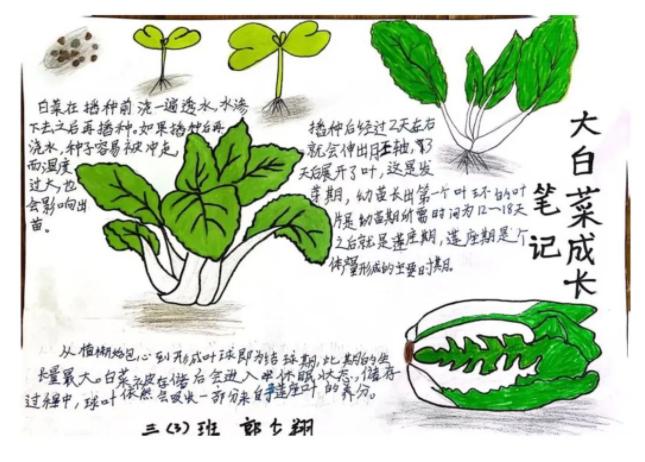 大白菜成长
笔记
白菜在播种前浇一遍透水,水渗
下去之后再播种。如果播种后再
浇水,种子容易被冲走,
而湿度
过大,也
会影响出
苗。
播种后经过2天左右
就会伸出胚轴,
天后展开了叶,这是发
芽期,幼苗长出第一个叶环的叶
片是幼苗期所需时间为12一18天
之后就是莲座期,莲座期是个
体形成的主要时期。
从植棵始包心到形成叶球即为结球期,此期的生
长量最大。白菜被在储后会进入休眠状态,储存
过程中,球叶依然会吸收一部分来自于莲座叶的养分。
三(3)班 郭
翔